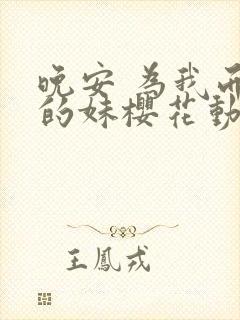 晚安 為我而
的妹櫻花動
王鳳戎